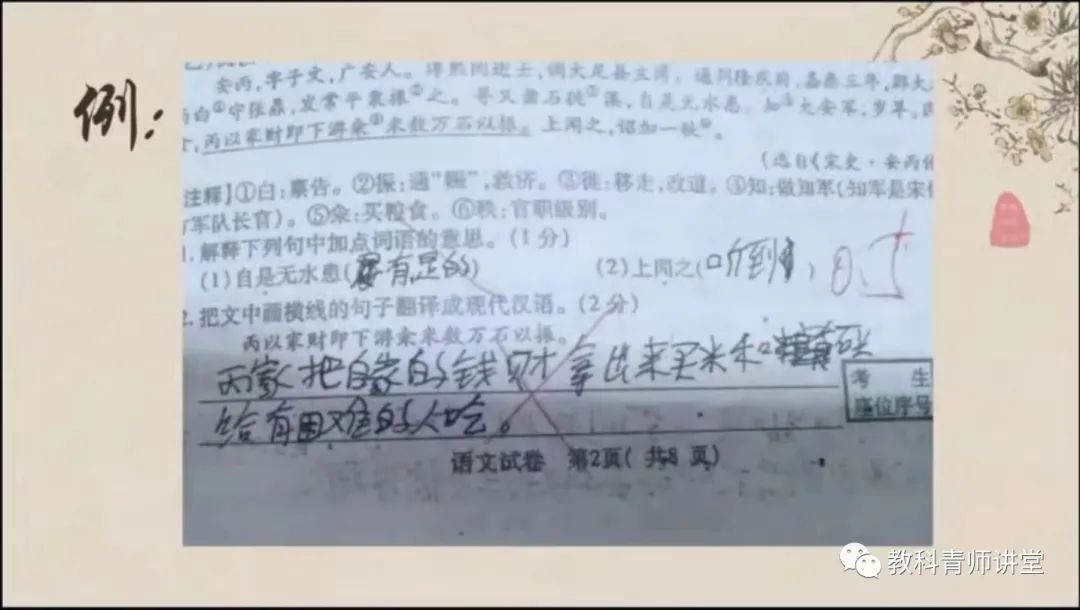 例:
安丙,字子文,广安人。淳熙间进士,调大足县主簿。通判隆庆府,嘉泰三年,郡大
白①守张鼎,发常平粟振②之。寻又凿石徙③溪,自是无水患。知④大安军,岁旱,
丙以家财即下游籴⑤米数万石以振。上闻之,诏加一秩⑥。
(选自《宋史·安丙
注释】①白:禀告。②振:通“赈”,救济。③徙:移走,改道。④知:做知军(知军是宋
军队长官)。⑤籴:买粮食。⑥秩:官职级别。
1.解释下列句中加点词语的意思。(1分)
(1)自是无水患( 有足的) (2)上闻之(听到)
2.把文中画横线的句子翻译成现代汉语。(2分)
丙以家财即下游籴米数万石以振。
丙家把自家的钱财拿出来买米和
给有困难的人吃。
考 生
座位序号
语文试卷 第2页(共8页)
教科青师讲堂